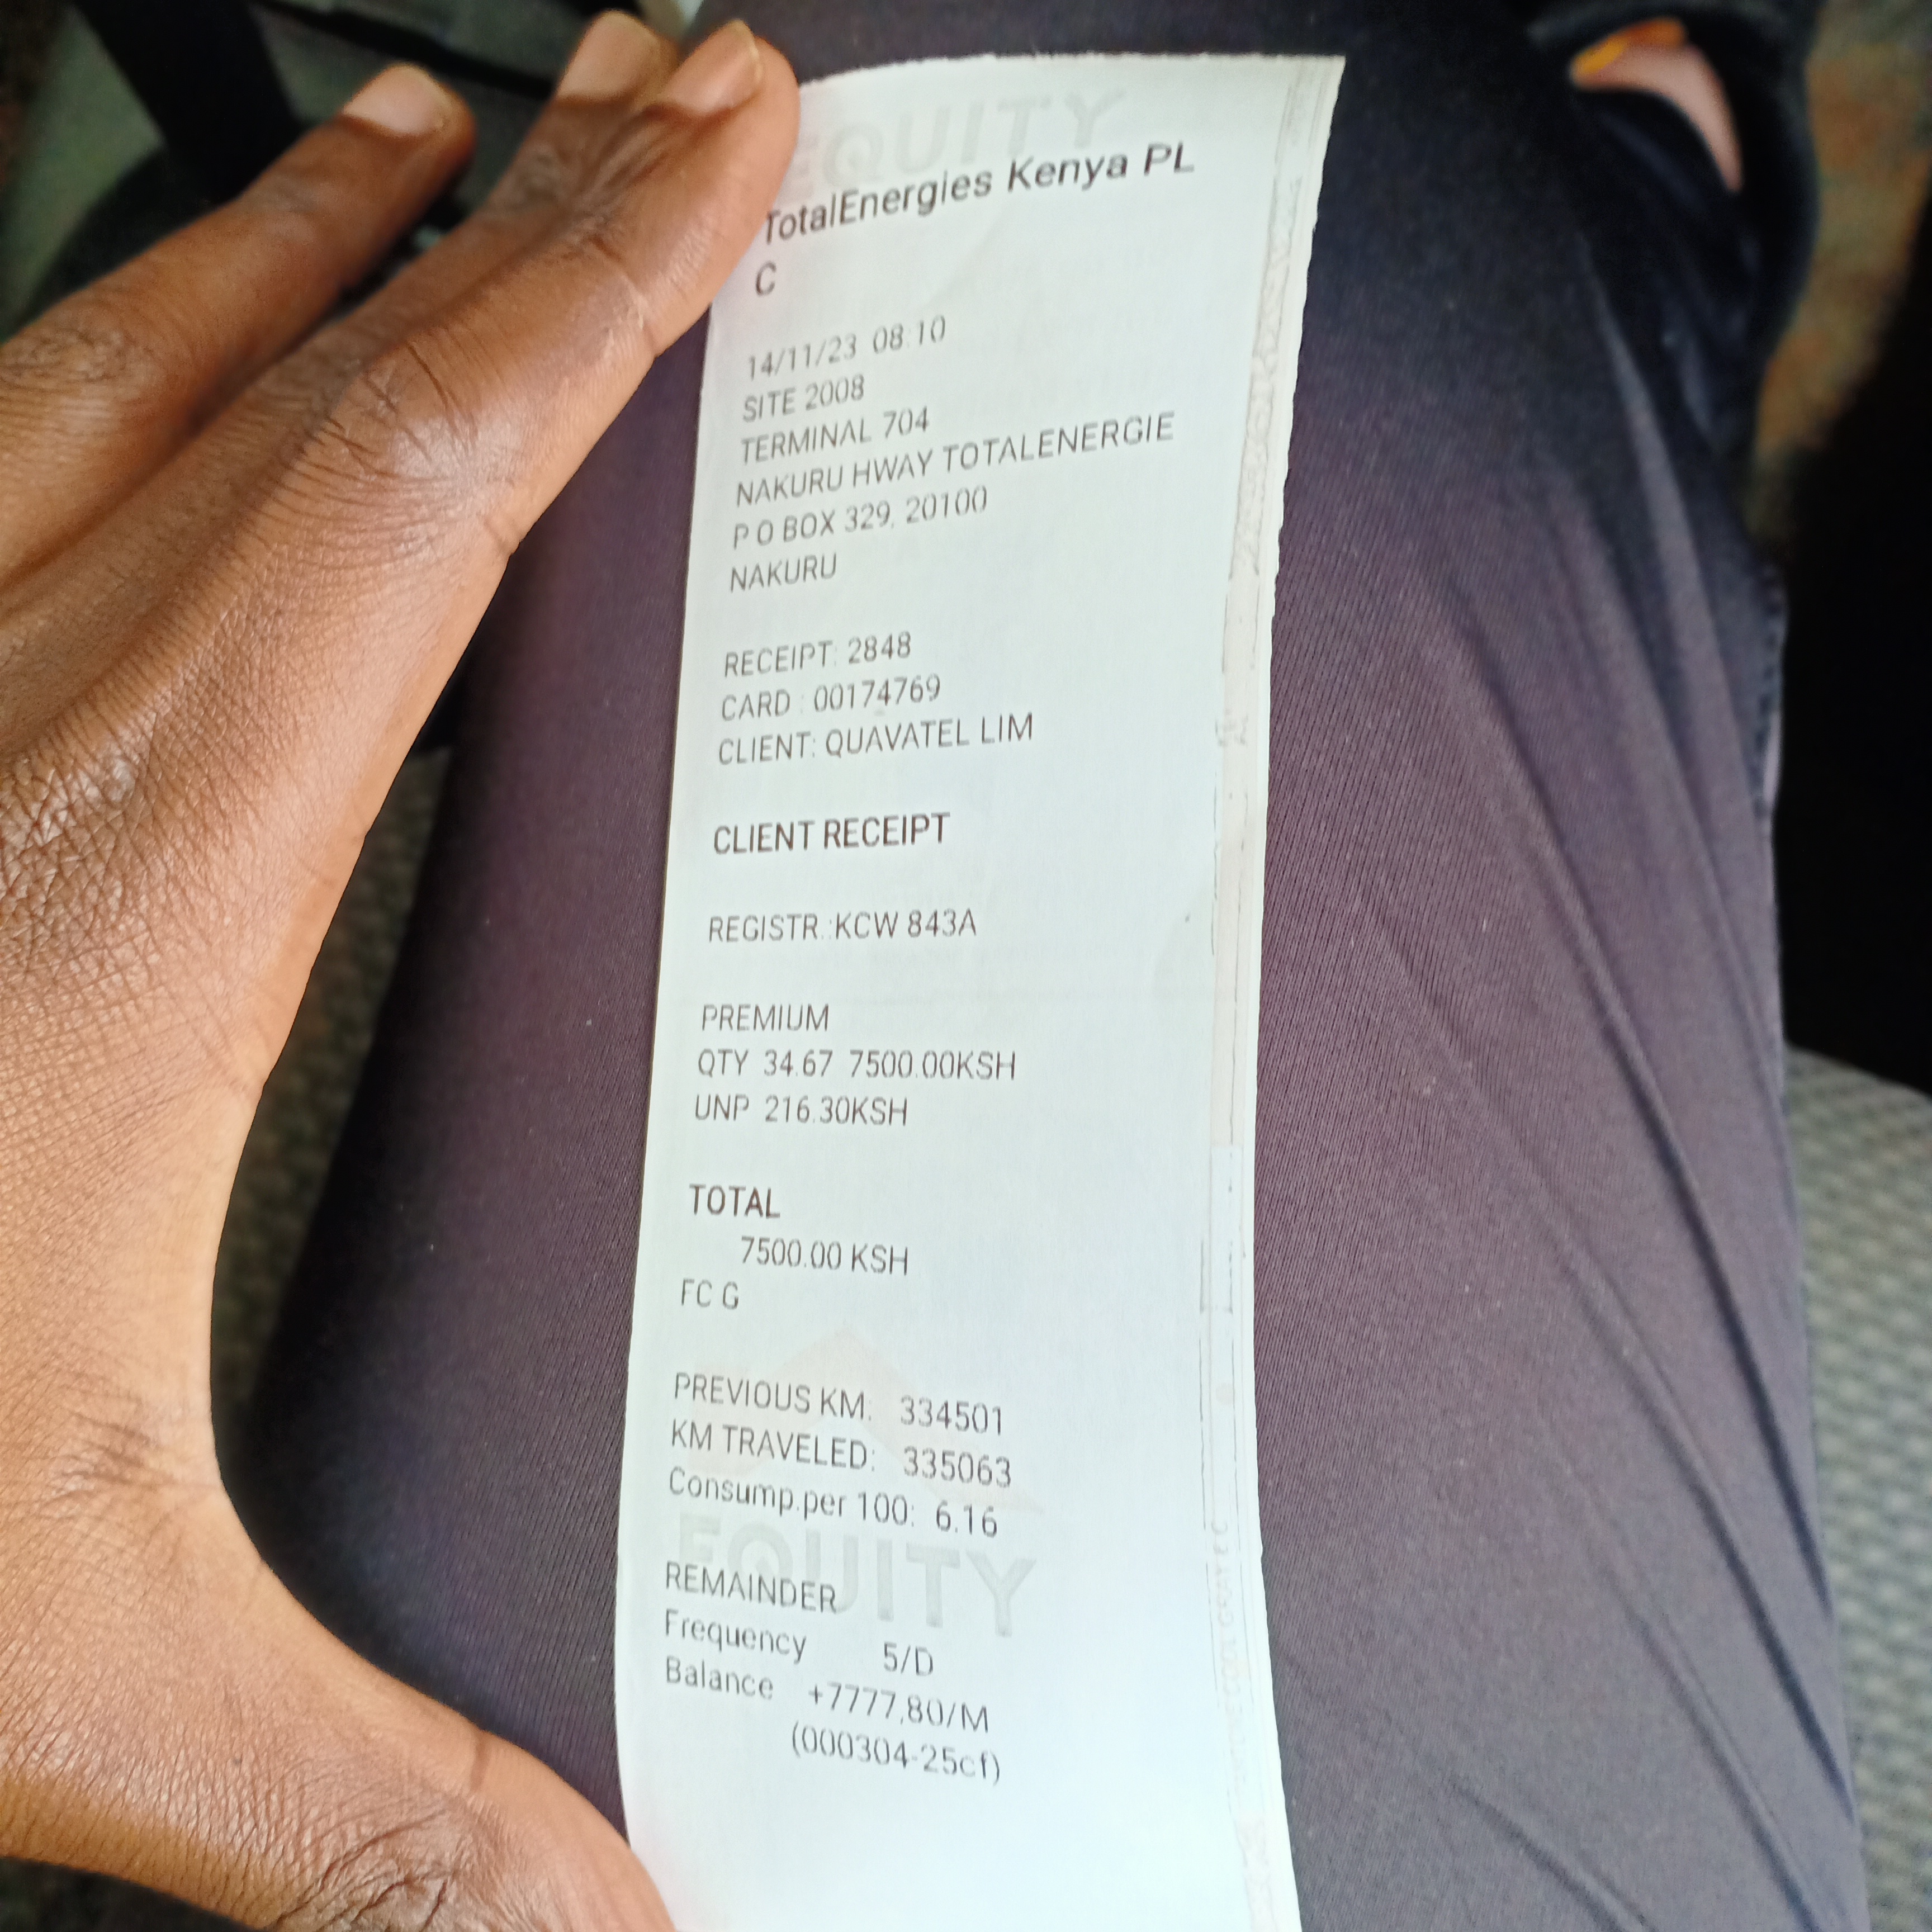 EQUITY
TotalEnergies Kenya PL
C
14/11/23 08:10
SITE 2008
TERMINAL 704
NAKURU HWAY TOTALENERGIE
P O BOX 329, 20100
NAKURU
RECEIPT: 2848
CARD : 00174769
CLIENT: QUAVATEL LIM
CLIENT RECEIPT
REGISTR.:KCW 843A
PREMIUM
QTY 34.67 7500.00KSH
UNP 216.30KSH
TOTAL
7500.00 KSH
FC G
PREVIOUS KM: 334501
KM TRAVELED: 335063
Consump.per 100: 6.16
EQUITY
REMAINDER
Frequency 5/D
Balance +7777,80/M
(000304-25cf)